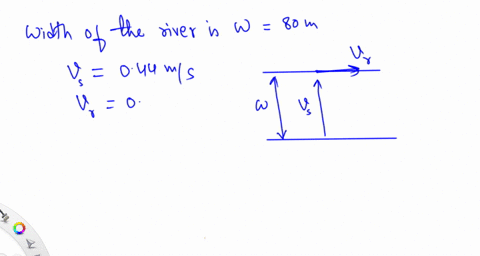 Width of the river is w = 80 m
V_s = 0.44 m/s
V_r = 0.
V_r
w
V_s